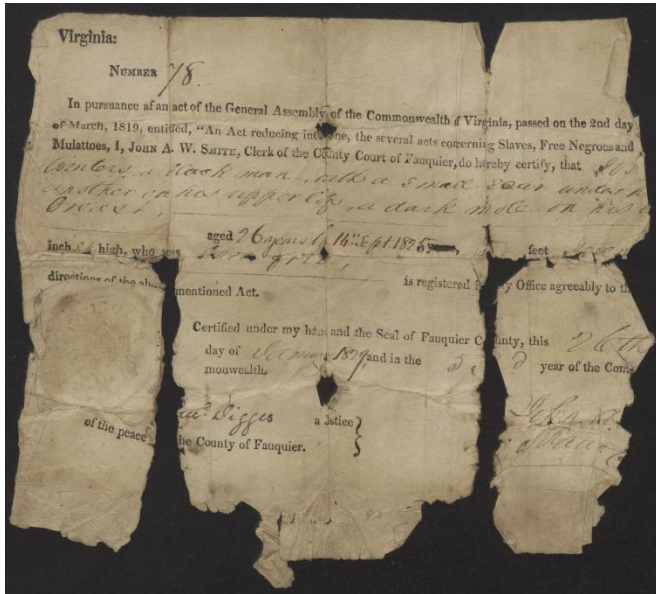 Virginia:
NUMBER 78.
In pursuance af an act of the General Assembly of the Commonwealth of Virginia, passed on the 2nd day
of March, 1819, entitled, "An Act reducing into one, the several acts concerning Slaves, Free Negroes and
Mulattoes, I, JOHN A. W. SMITH, Clerk of the County Court of Fauquier, do hereby certify, that
Winters a black man, with a small scar under
another on his upper lip a dark mole on his
breast,
aged 26 years by 14th Sept. 1825, feet
inch high, who was born free,
directions of the above mentioned Act. is registered in my Office agreeably to th
Certified under my hand and the Seal of Fauquier County, this 26th
day of 1829 and in the 53d year of the Com
monwealth.
Digges a Jstice
of the peace the County of Fauquier.